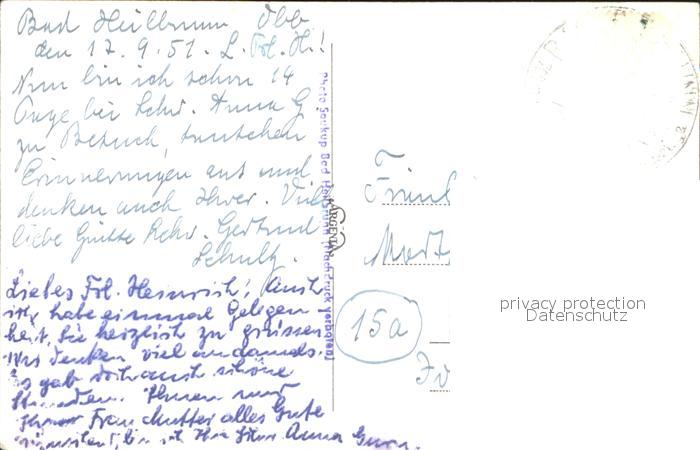 Bad Heilbrunn Obb
den 17.9.51. L. Frl. H.!
Nun bin ich schon 14
Tage bei Schw. Anna G
zu Besuch, tauschen
Erinnerungen aus und
denken auch Ihrer. Viele
liebe Grüsse Schw. Gertrud
Schultz.
Liebes Frl. Heinrich! Auch
ich habe einmal Gelegen
heit, Sie herzlich zu grüssen
Wir denken viel an damals.
Es gab doch auch schöne
Stunden. Ihnen und
Ihrer Frau Mutter alles Gute
bin ich Ihre Schw. Anna
Photo Soukup Bad Heilbrunn (Nachdruck verboten)
ARGEPHA
Fräul
15a
privacy protection
Datenschutz